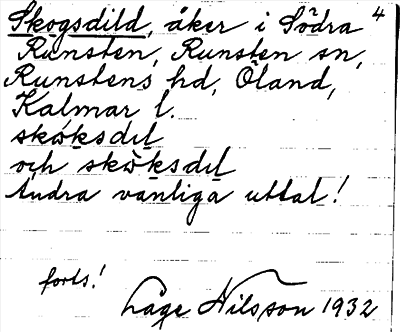 Skogsdild, åker i Södra 4
Runsten, Runsten sn,
Runstens hd, Öland,
Kalmar l.
och
Andra vanliga uttal!
forts!
Låge Nilsson 1932